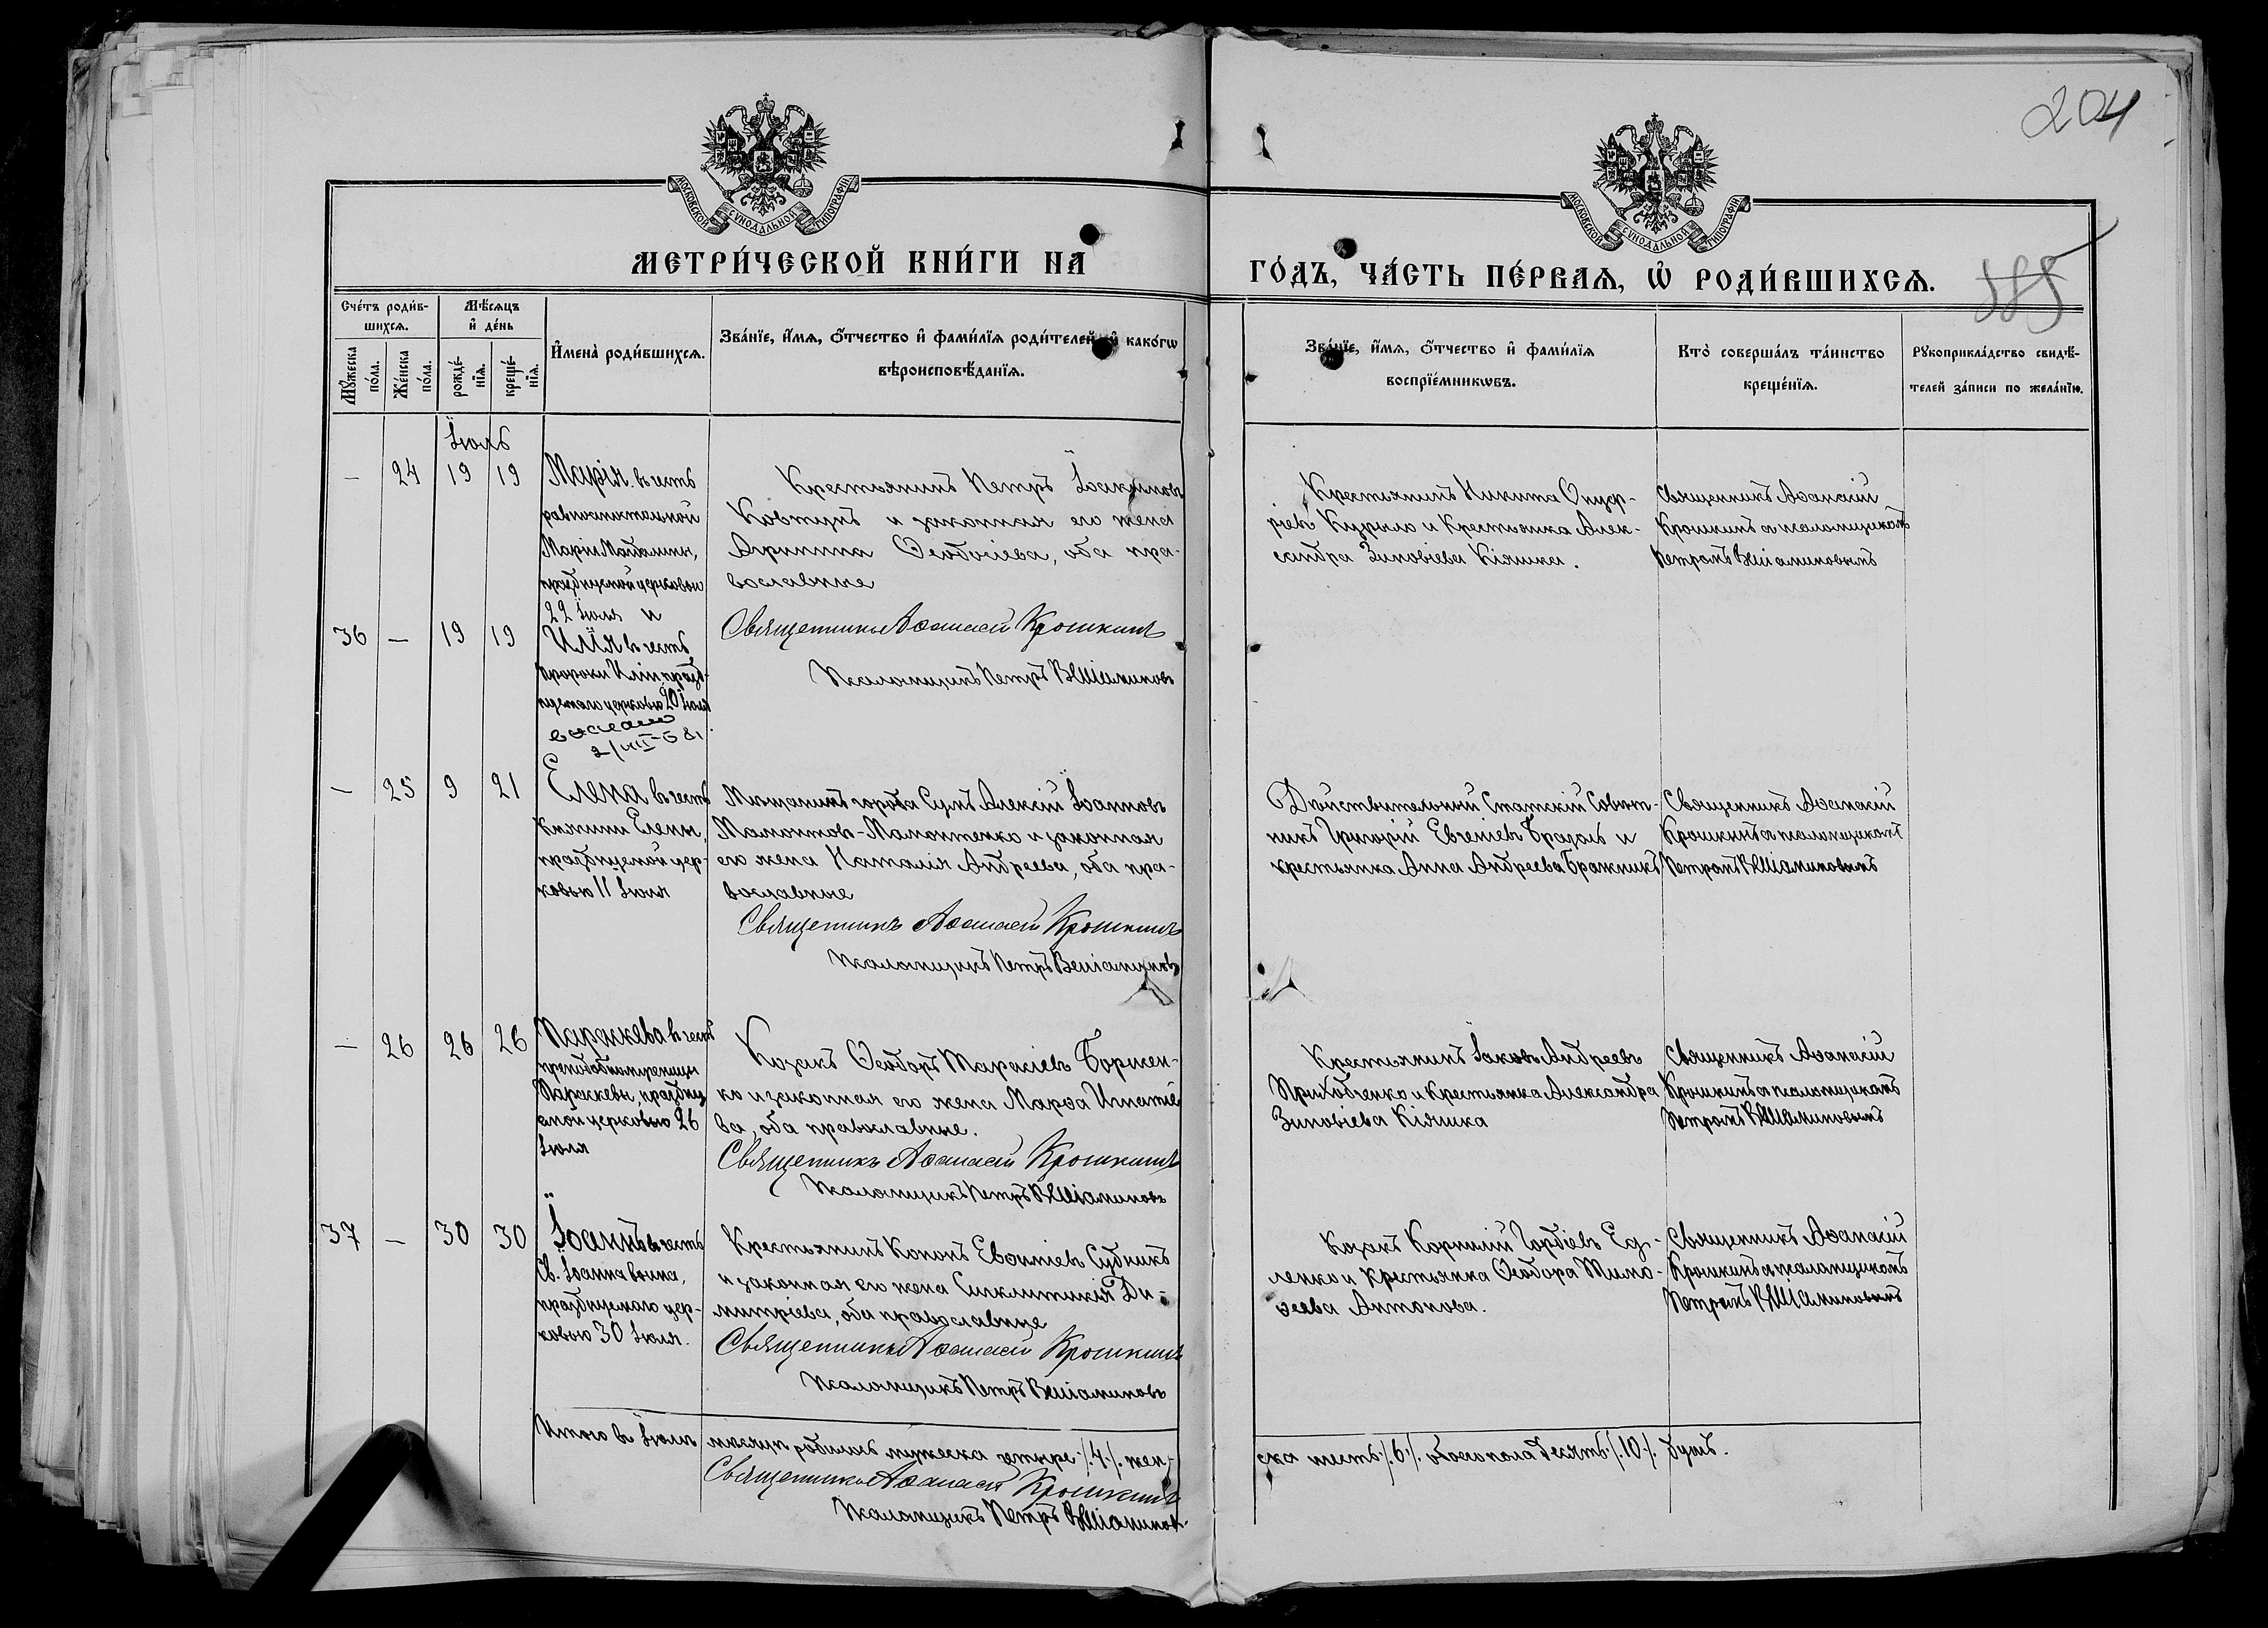 204
МОСКОВСКОЙ СѴНОДАЛЬНОЙ ТИПОГРАФІИ
МОСКОВСКОЙ СѴНОДАЛЬНОЙ ТИПОГРАФІИ
МЕТРИ́ЧЕСКОЙ КНИ́ГИ НА
ГО́ДЪ, ЧА́СТЬ ПЕ́РВАѦ, Ѡ РОДИ́ВШИХСѦ.
585
Сче́тъ роди́в-
шихсѧ.
Мѣ́сѧцъ
и҆ де́нь
Мꙋ́жеска
по́ла.
Же́нска
по́ла.
рожде́-
нїѧ.
креще́-
нїѧ.
И҆мена̀ роди́вшихсѧ.
Зва́нїе, и҆́мѧ, ѻ҆́тчество и҆ фами́лїѧ роди́телей, и҆ како́гѡ
вѣроисповѣ́данїѧ.
Зва́нїе, и҆́мѧ, ѻ҆́тчество и҆ фами́лїѧ
воспрїе́мникѡвъ.
Кто̀ соверша́лъ та́инство
креще́нїѧ.
Рꙋкоприкла́дство свидѣ́-
телей за́писи по жела́нїю.
Іюль
— 24 19 19
Марія въ честь
равноапостольной
Маріи Магдалины,
празднуемой церковью
22 Іюля и
Крестьянинъ Петръ Іоакимовъ
Ковтунъ и законная его жена
Агрипина Ѳеодосіева, оба пра-
вославные
Крестьянинъ Никита Онуф-
ріевъ Курыло и Крестьянка Алек-
сандра Зиновіева Кіяшка.
Священникъ Аѳанасій
Крошкинъ съ псаломщикомъ
Петромъ Веніаминовымъ
36 — 19 19
Илія въ честь
Пророка Иліи, празд-
нуемаго церковью 20 Іюля
Священникъ Аѳанасій Крошкинъ
Псаломщикъ Петръ Веніаминовъ
2/VIII-
— 25 9 21
Елена въ честь
Княгини Елены,
празднуемой цер-
ковью 11 Іюля
Мѣщанинъ города Сумъ Алексій Іоанновъ
Мамонтовъ-Мамонтенко и законная
его жена Наталія Андреева, оба пра-
вославные
Священникъ Аѳанасій Крошкинъ
Псаломщикъ Петръ Веніаминовъ
Дѣйствительный Статскій Совѣт-
никъ Григорій Евгеніевъ Бразоль и
крестьянка Анна Андреева Бражникъ
Священникъ Аѳанасій
Крошкинъ съ псаломщикомъ
Петромъ Веніаминовымъ
— 26 26 26
Параскева въ честь
преподобномученицы
Параскевы, праздну-
емой церковью 26
Іюля
Козакъ Ѳеодоръ Тарасіевъ Боржен-
ко и законная его жена Марѳа Игнатіе-
ва, оба православные.
Священникъ Аѳанасій Крошкинъ
Псаломщикъ Петръ Веніаминовъ
Крестьянинъ Іаковъ Андреевъ
Приходченко и Крестьянка Александра
Зиновіева Кіяшка
Священникъ Аѳанасій
Крошкинъ съ псаломщикомъ
Петромъ Веніаминовымъ
37 — 30 30
Іоаннъ въ честь
Св. Іоанна воина,
празднуемаго цер-
ковью 30 Іюля.
Крестьянинъ Кононъ Евѳиміевъ Судникъ
и законная его жена Синклитикія Ди-
митріева, оба православные
Священникъ Аѳанасій Крошкинъ
Псаломщикъ Петръ Веніаминовъ
Козакъ Корнилій Гордіевъ
ленко и Крестьянка Ѳеодора Тимо-
ѳеева Антонова.
Священникъ Аѳанасій
Крошкинъ съ псаломщикомъ
Петромъ Веніаминовымъ
Итого въ Іюлѣ мѣсяцѣ родилось мужеска четыре ·/.4./. жен-
ска шесть ·/.6./. обоего пола десять ·/.10./. душъ.
Священникъ Аѳанасій Крошкинъ
Псаломщикъ Петръ Веніаминовъ